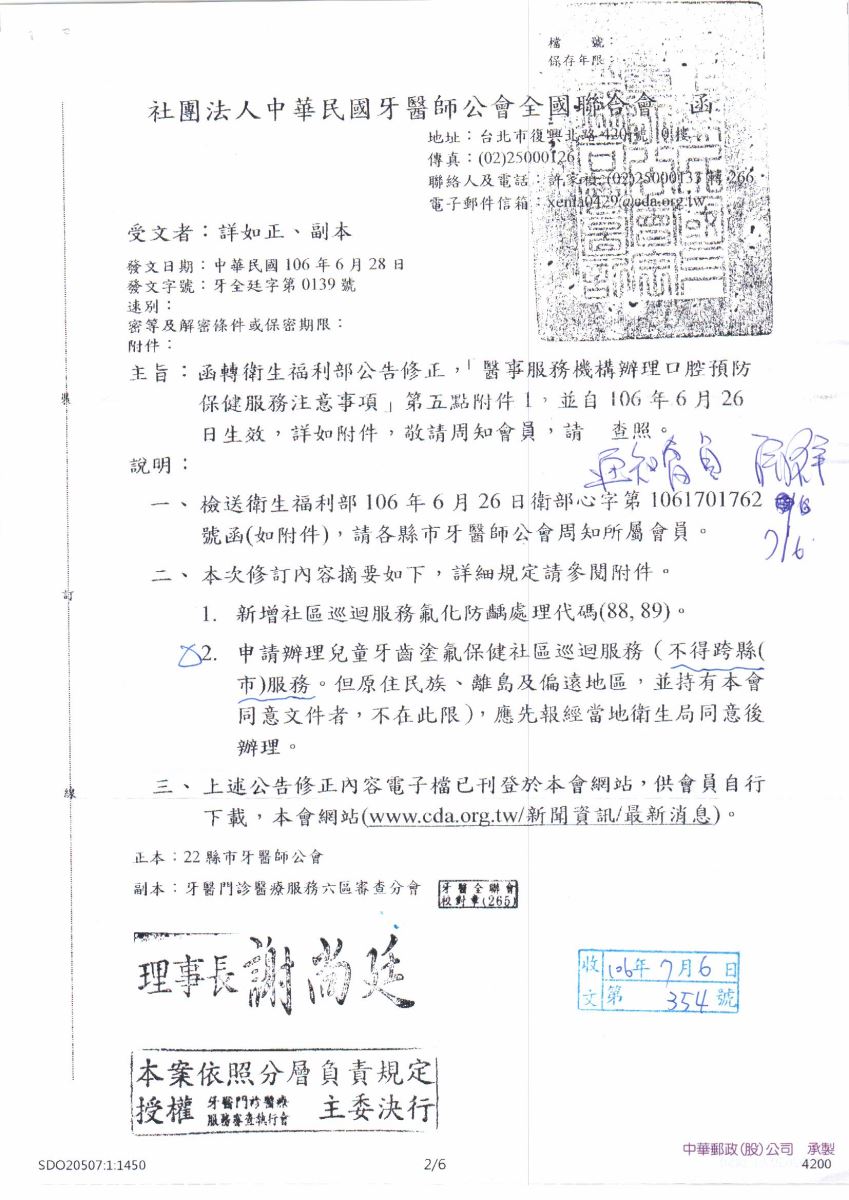 檔　　號：
保存年限：
社團法人中華民國牙醫師公會全國聯合會　函
地址：台北市復興北路 420 號 10 樓
傳真：(02)25000126
聯絡人及電話：許家禎 (02)25000133 轉 266
電子郵件信箱：xenia0429@cda.org.tw
受文者：詳如正、副本
發文日期：中華民國 106 年 6 月 28 日
發文字號：牙全廷字第 0139 號
速別：
密等及解密條件或保密期限：
附件：
主旨：函轉衛生福利部公告修正，「醫事服務機構辦理口腔預防
保健服務注意事項」第五點附件 1，並自 106 年 6 月 26
日生效，詳如附件，敬請周知會員，請　查照。
說明：
7/6
一、檢送衛生福利部 106 年 6 月 26 日衛部心字第 1061701762
號函(如附件)，請各縣市牙醫師公會周知所屬會員。
二、本次修訂內容摘要如下，詳細規定請參閱附件。
1. 新增社區巡迴服務氟化防齲處理代碼(88, 89)。
2. 申請辦理兒童牙齒塗氟保健社區巡迴服務（不得跨縣(
市)服務。但原住民族、離島及偏遠地區，並持有本會
同意文件者，不在此限），應先報經當地衛生局同意後
辦理。
三、上述公告修正內容電子檔已刊登於本會網站，供會員自行
下載，本會網站(www.cda.org.tw/新聞資訊/最新消息)。
裝
訂
線
正本：22 縣市牙醫師公會
副本：牙醫門診醫療服務六區審查分會
牙醫全聯會
校對章(265)
理事長 謝尚廷
收文 106年 7月 6日
第 354 號
本案依照分層負責規定
授權 牙醫門診醫療服務審查執行會 主委決行
中華郵政(股)公司　承製
SDO20507:1:1450
2/6
4200